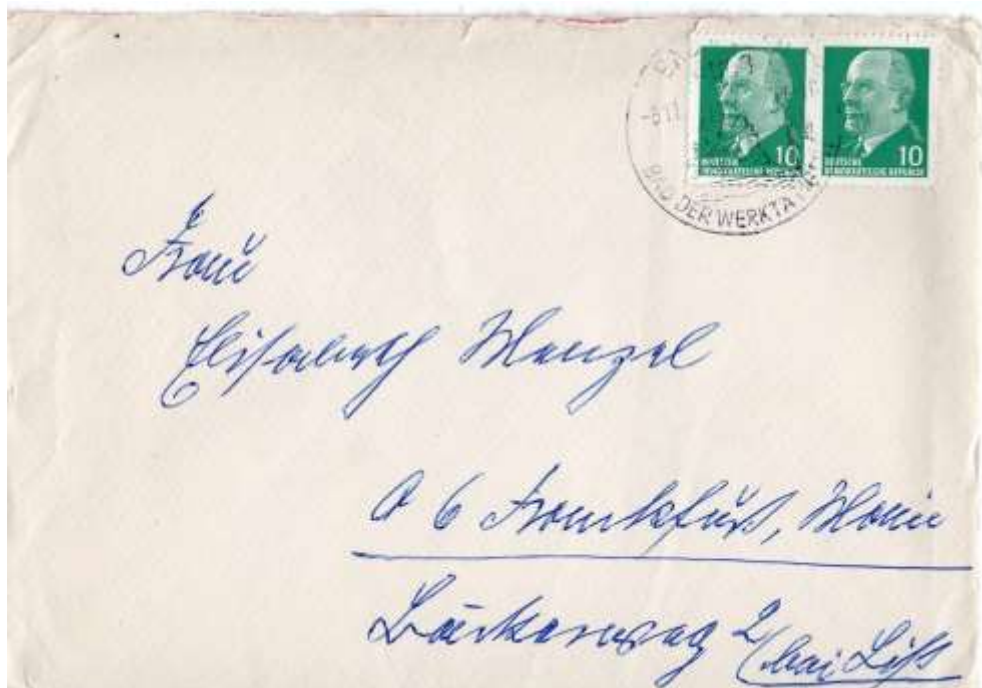 -6.11.
BAD DER WERKTÄTIGEN
10
DEUTSCHE
DEMOKRATISCHE REPUBLIK
10
DEUTSCHE
DEMOKRATISCHE REPUBLIK
Frau
Elisabeth Menzel
6 Frankfurt, Main
Bäckerweg 2
/bei